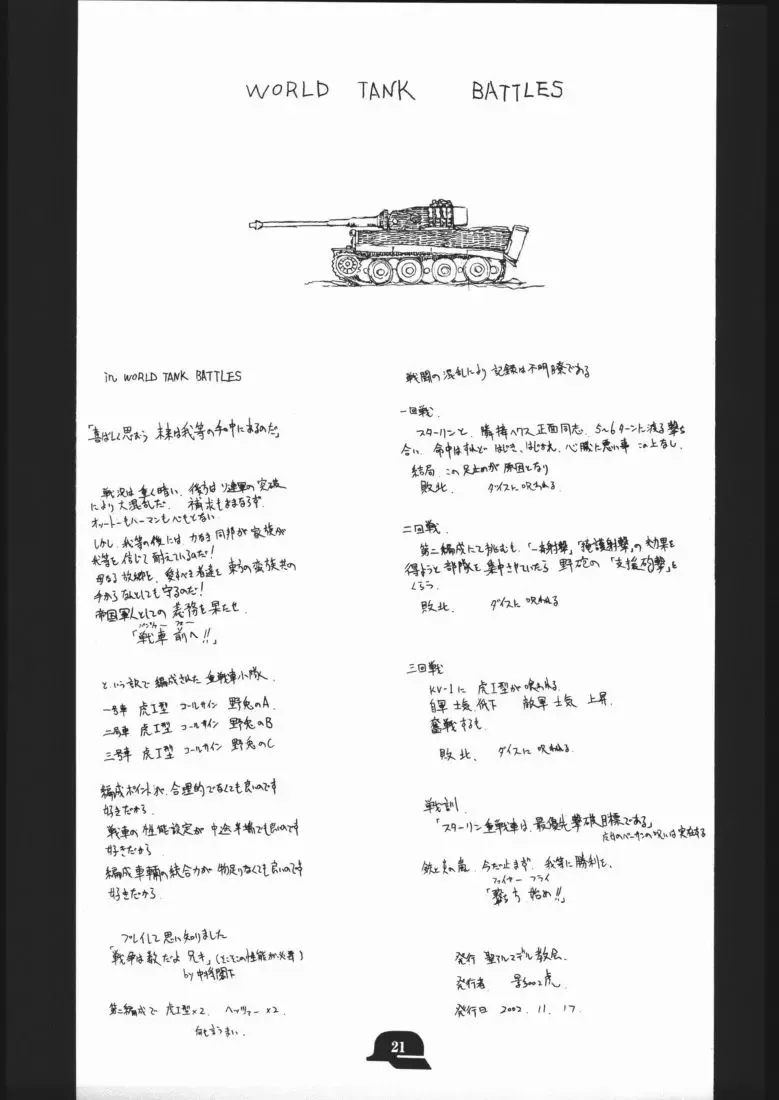 WORLD TANK BATTLES
in WORLD TANK BATTLES
「喜ばしく思おう 未来は我等の手中にあるのだ」
戦況は重く暗い、後方はソ連軍の突破
により大混乱だ。 補求もままならず
オットーもハーマンもベもとない
しかし、我等の後には 力なき同邦が家族が
我等を信じて耐えているのだ!
母なる故郷と、愛すべき者達を 東方の蛮族共の
手からなんとしても守るのだ!
帝国軍人としての 義務を果たせ
パンツァー フォー
「戦車 前へ!!」
という訳で編成された 重戦車小隊
一号車 虎I型 コールサイン 野兎のA
二号車 虎I型 コールサイン 野兎のB
三号車 虎I型 コールサイン 野兎のC
編成ポイントが、合理的でなくても良いのです
好きだから
戦車の性能設定が 中途半場でも良いのです
好きだから
編成車輛の統合力が 物足りなくても良いのです
好きだから
プレイして思い知りました
「戦争は数だよ 兄キ」(そこそこの性能が必要)
by 中将閣下
第二編成で 虎I型×2 ヘッツァー×2
何も言うまい
戦闘の混乱により 記録は不明瞭である
一回戦
スターリンと、隣接ヘクス 正面同志、5〜6ターンに渡る撃ち
合い、命中はすれど はじき、はじかえ、心臓に悪い事 この上なし、
結局 この足止めが原因となり
敗北、 ダイスに呪われる
二回戦
第二編成にて挑むも、「一斉射撃」「掩護射撃」の効果を
得ようと 部隊を集中させていたら 野砲の「支援砲撃」を
くらう
敗北 ダイスに呪われる
三回戦
KV-1に 虎I型が喰われる
自軍 士気 低下 敵軍 士気 上昇
奮戦するも
敗北、 ダイスに呪われる
戦訓
「スターリン重戦車は、最優先撃破目標である」
虎Iのバーサンの呪いは実在する
鉄と炎の嵐、今だ止まず、我等に勝利を、
ファイヤー フライ
「撃ち 始め!!」
発行 聖アルマデル教会
発行者 景3002虎
発行日 2002. 11. 17.
21